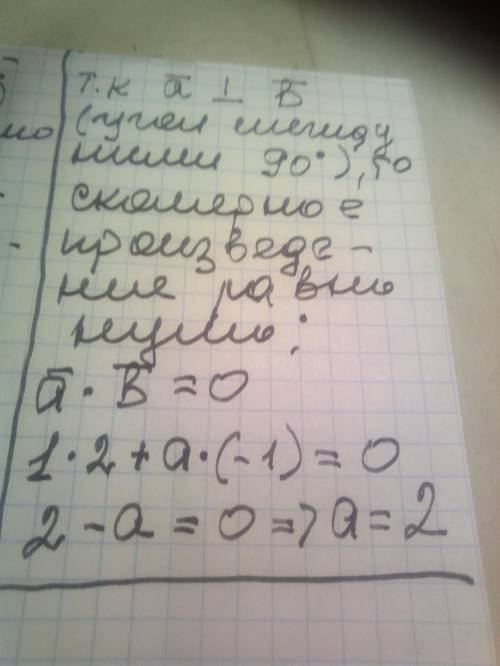 т.к ā ⊥ b̄
(угол между
ними 90°), то
скалярное
произведе-
ние равно
нулю:
ā · b̄ = 0
1·2+a·(-1)=0
2-a=0=>a=2